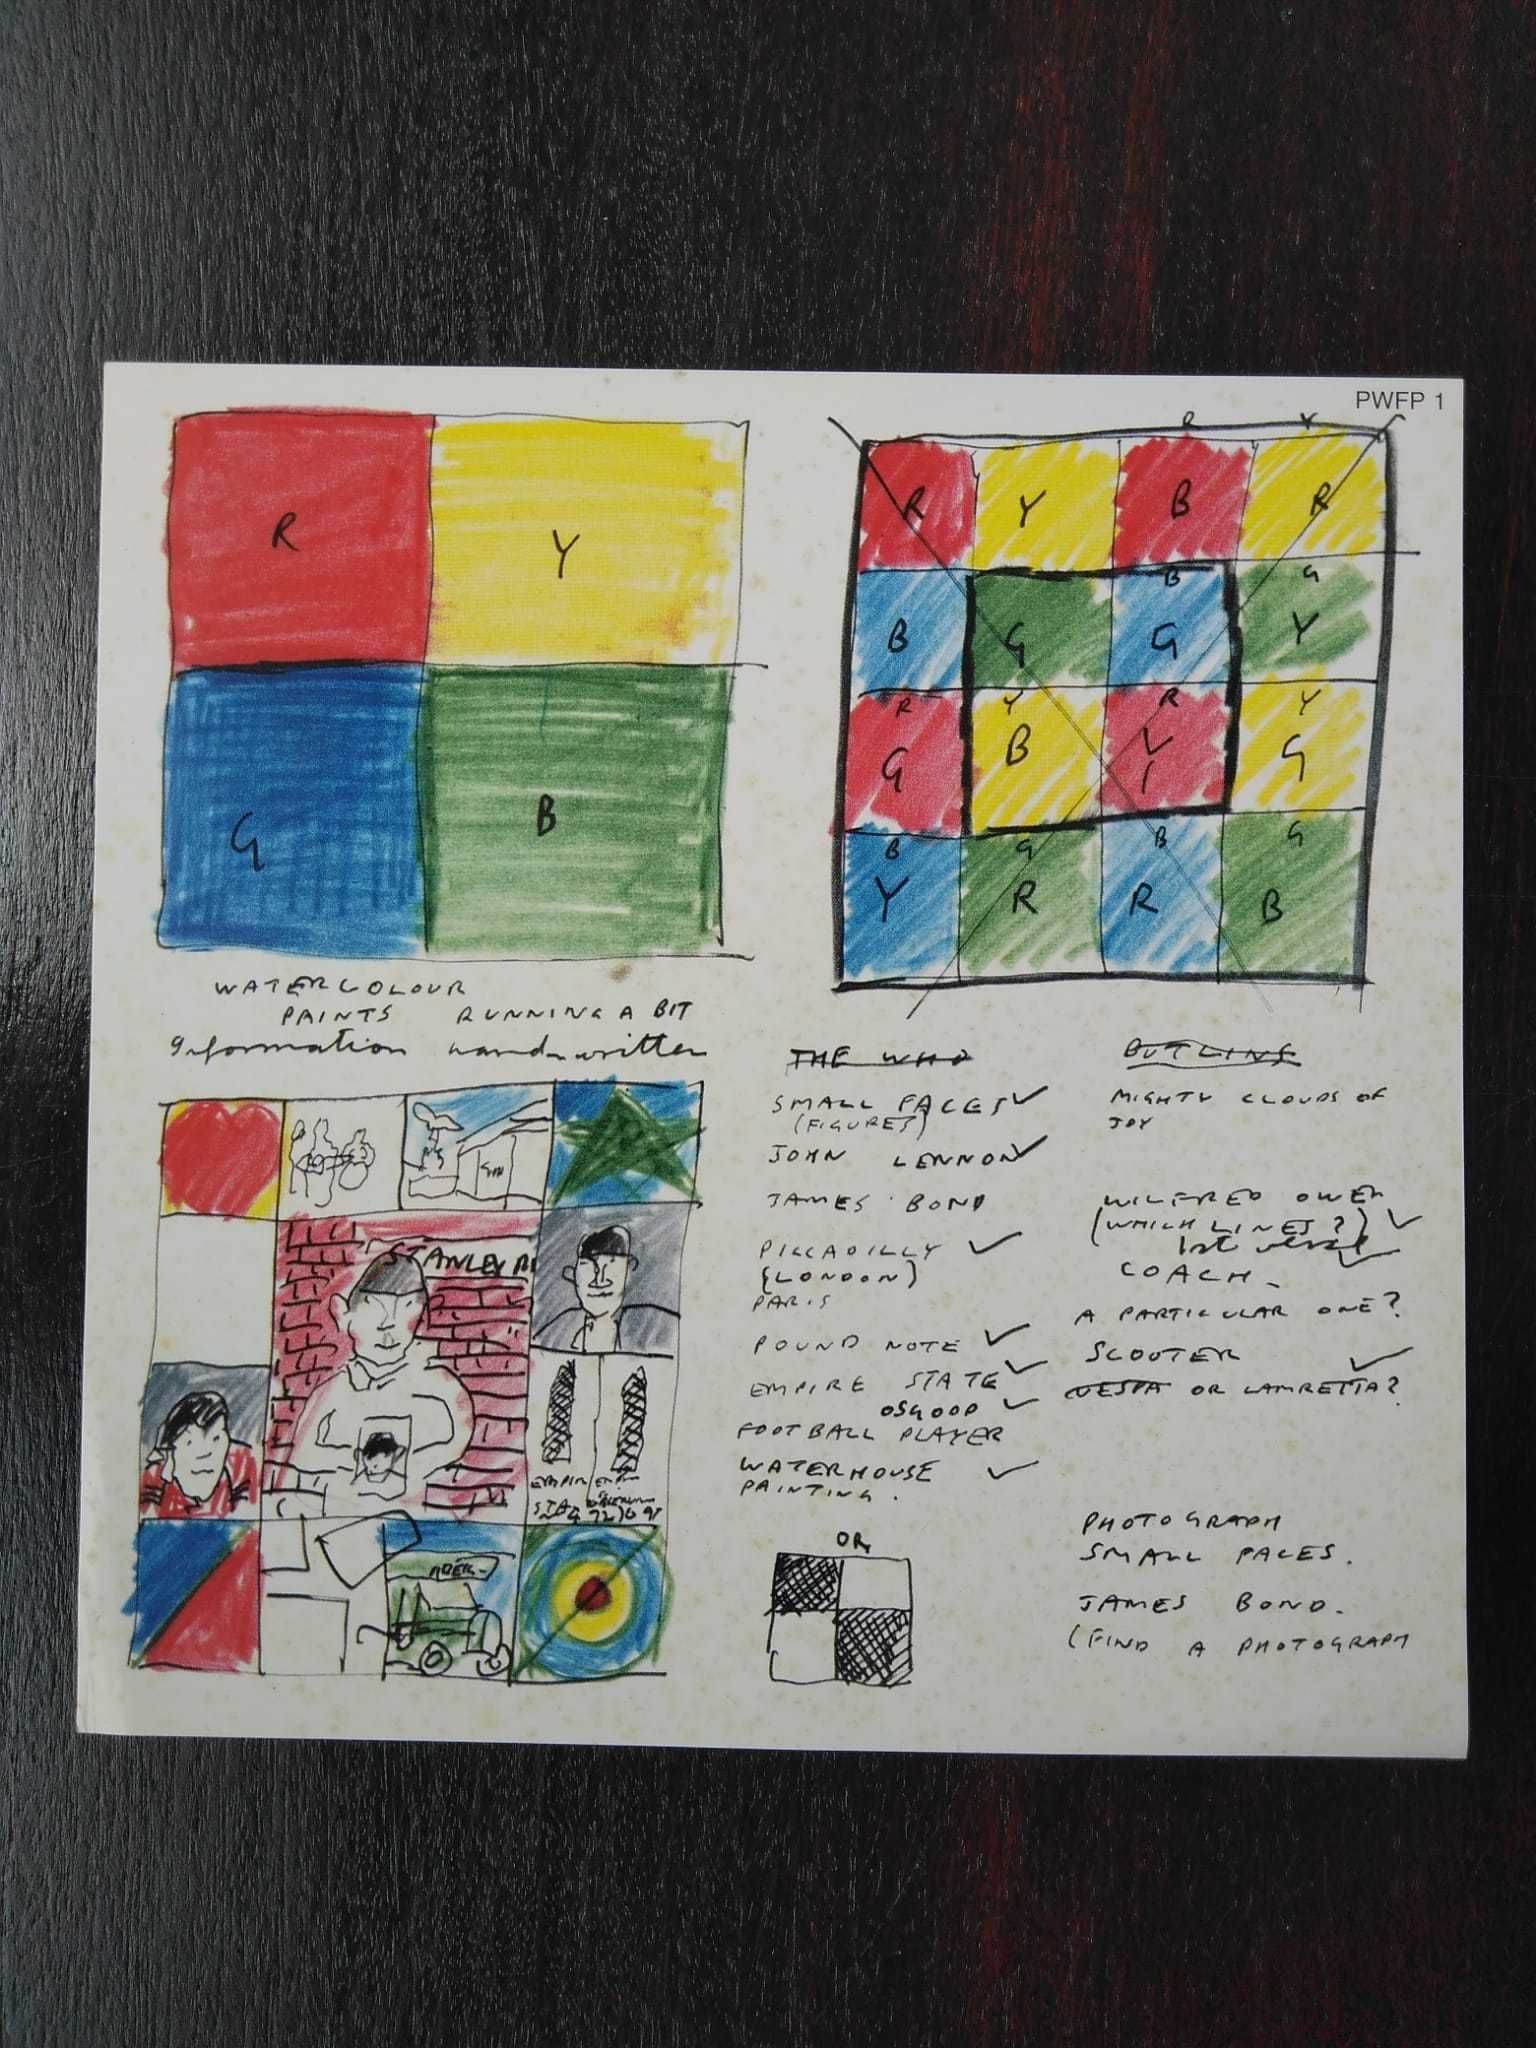 PWFP 1
R Y
G B
R Y
R Y B R
B G
B G G Y
R Y R Y
G B G
B G B G
Y R R B
WATERCOLOUR
PAINTS RUNNING A BIT
Information hand-written
STANLEY
THE WHO
SMALL FACES
(FIGURES)
JOHN LENNON
JAMES BOND
PICCADILLY
(LONDON)
PARIS
POUND NOTE
EMPIRE STATE
OSGOOD
FOOTBALL PLAYER
WATERHOUSE
PAINTING.
OR
MIGHTY CLOUDS OF
JOY
WILFRED OWEN
(WHICH LINES?)
COACH -
A PARTICULAR ONE?
SCOOTER
VESPA OR LAMRETTA?
PHOTOGRAPH
SMALL FACES.
JAMES BOND.
(FIND A PHOTOGRAPH